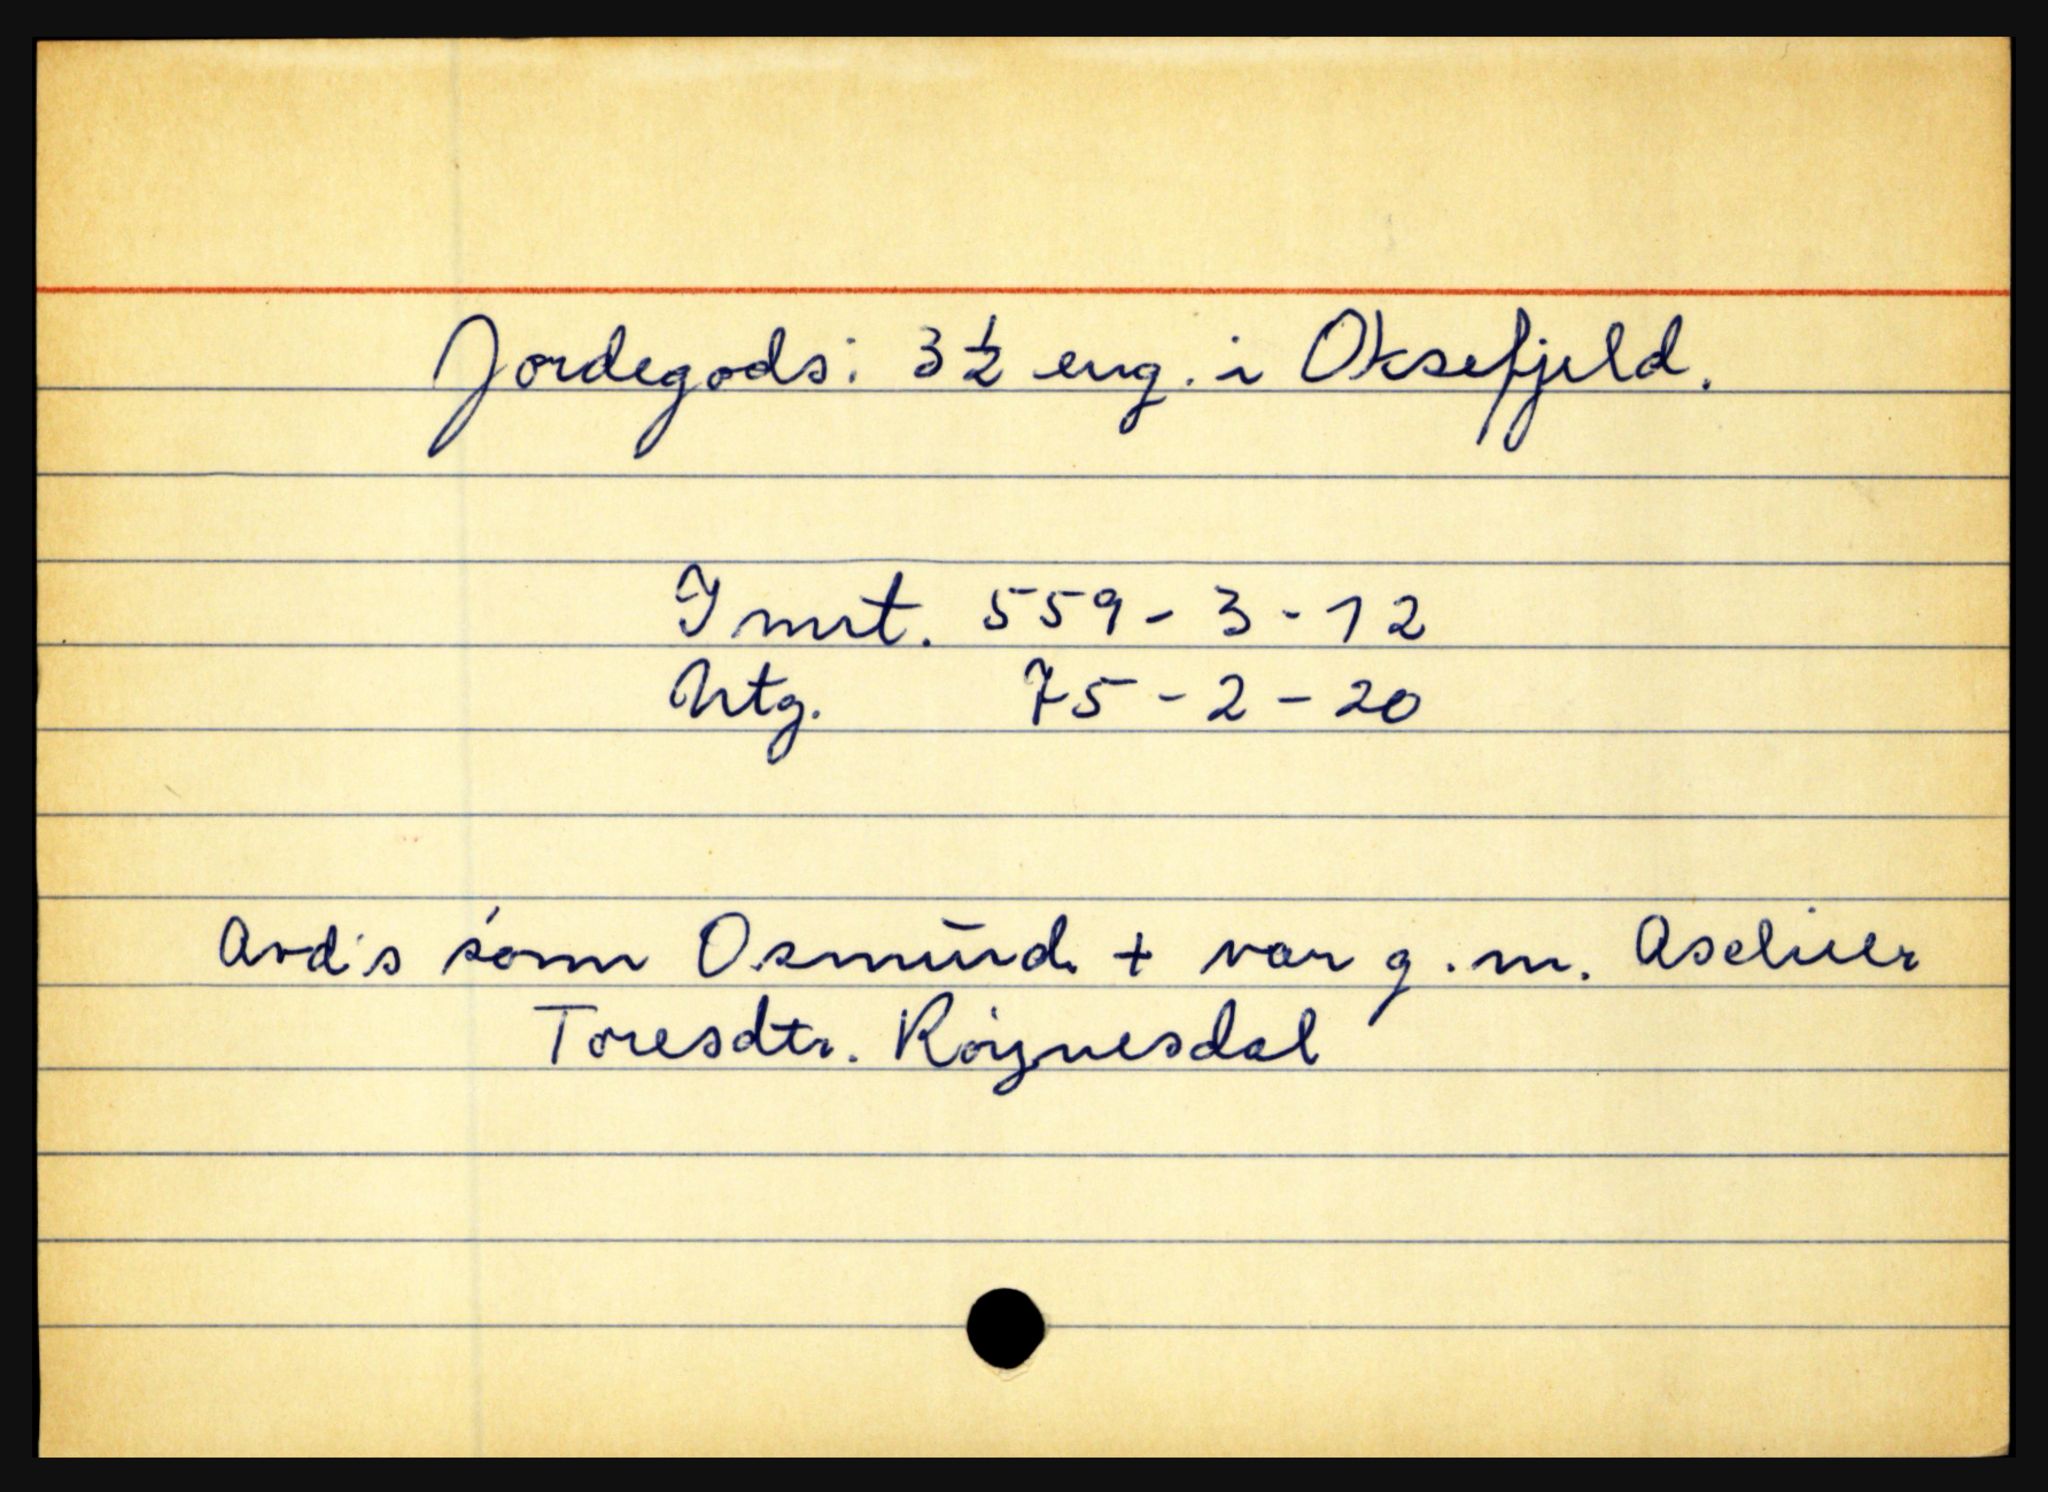 Jordegods: 3½ eng. i Oksefjeld.
Innt. 559 - 3 - 12
Utg. 75 - 2 - 20
Avd's sønn Osmund + var g. m. Aseliver
Toresdtr. Røynesdal